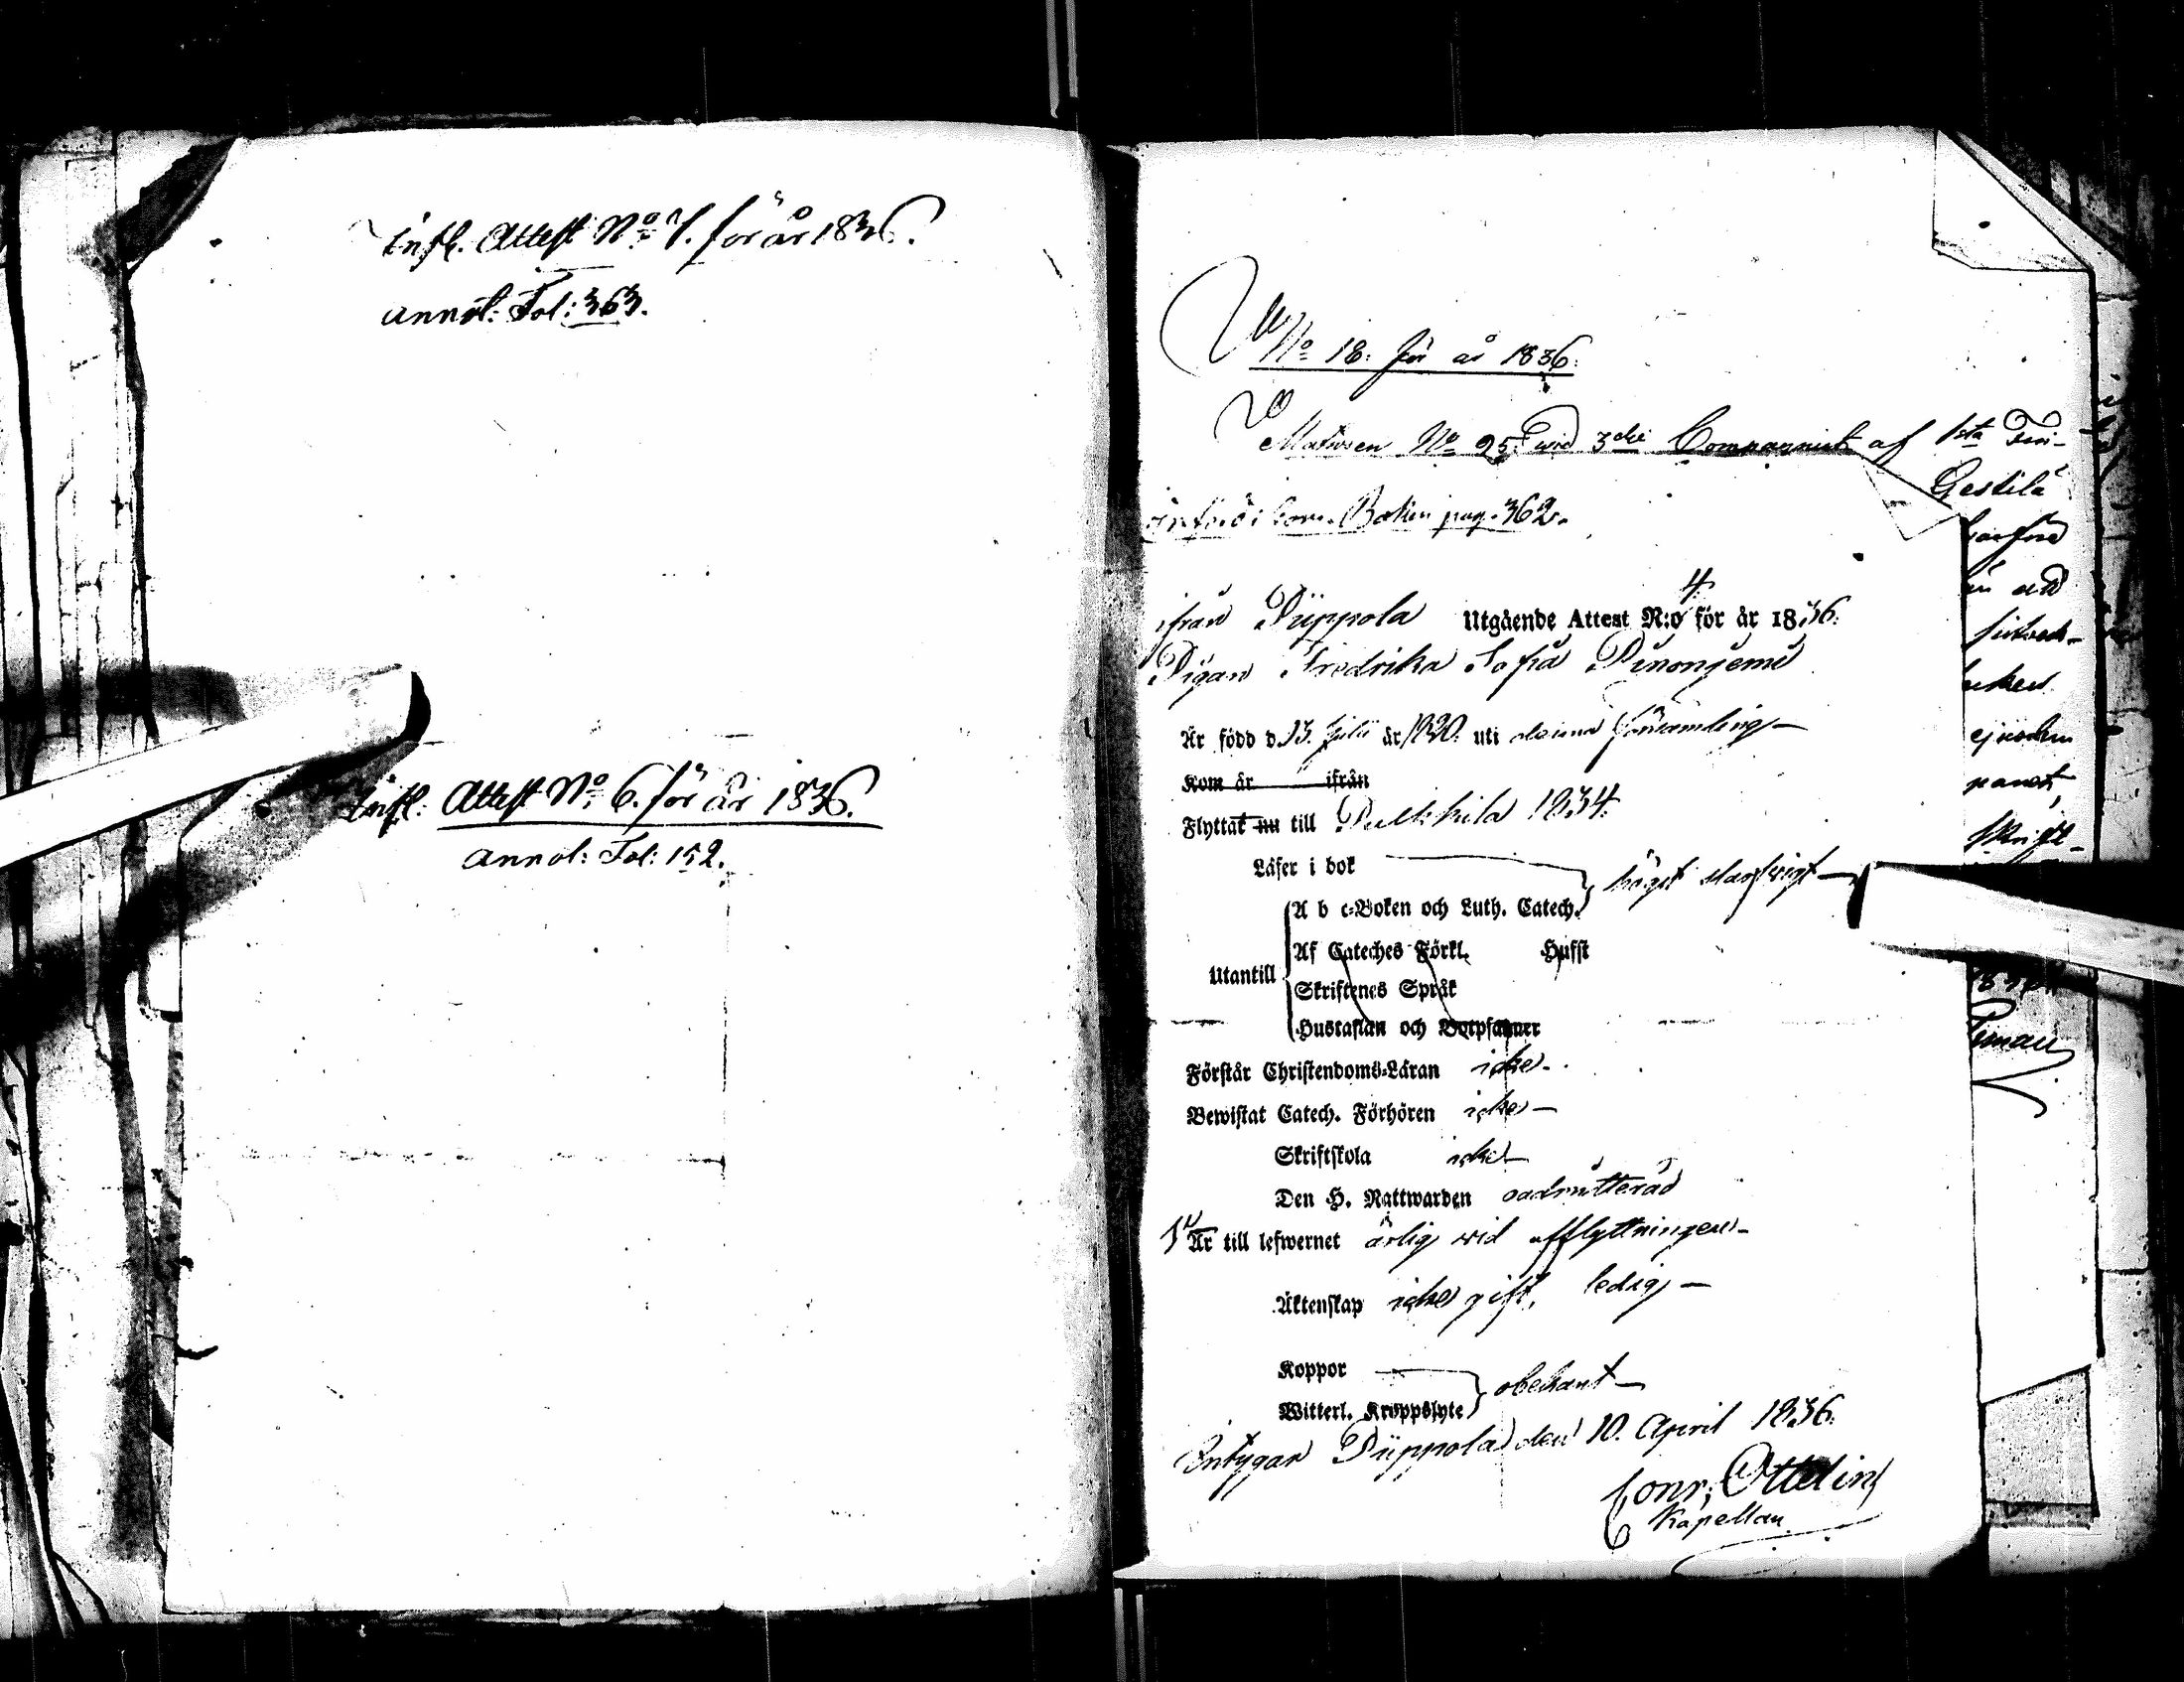 Infl. Attest No 7. för år 1836.
Annot: Fol: 363.
Infl: Attest No 6. för år 1836.
Annot: Fol: 152.
No 18. för år 1836.
No 25 wid 3die Compagniet af 1sta Fin-
Gestilä
införd i Com. Boken pag. 362.
ifrån Piippola Utgående Attest N:o 4. för år 1836.
Pigan Fredrika Sofia
Är född d. 13. Julii år 1820. uti denna församling
Kom år ifrån
Flyttat nu till Pulkkila 1834.
Läser i bok
A b c-Boken och Luth. Catech. högst slarfwigt
Af Cateches Förkl. Hufst
Utantill
Skriftenes Språk
Hustaflan och Botpsalmer
Förstår Christendoms-Läran icke
Bewistat Catech. Förhören icke
Skriftskola icke
Den H. Nattwarden oadmitterad
Är till lefwernet ärlig wid afflyttningen
Äktenskap icke gift, ledig
Koppor
Witterl. Kroppslyte obekant
Intygar Piippola den 10. April 1836.
Conr; Ottelin
Kapellan